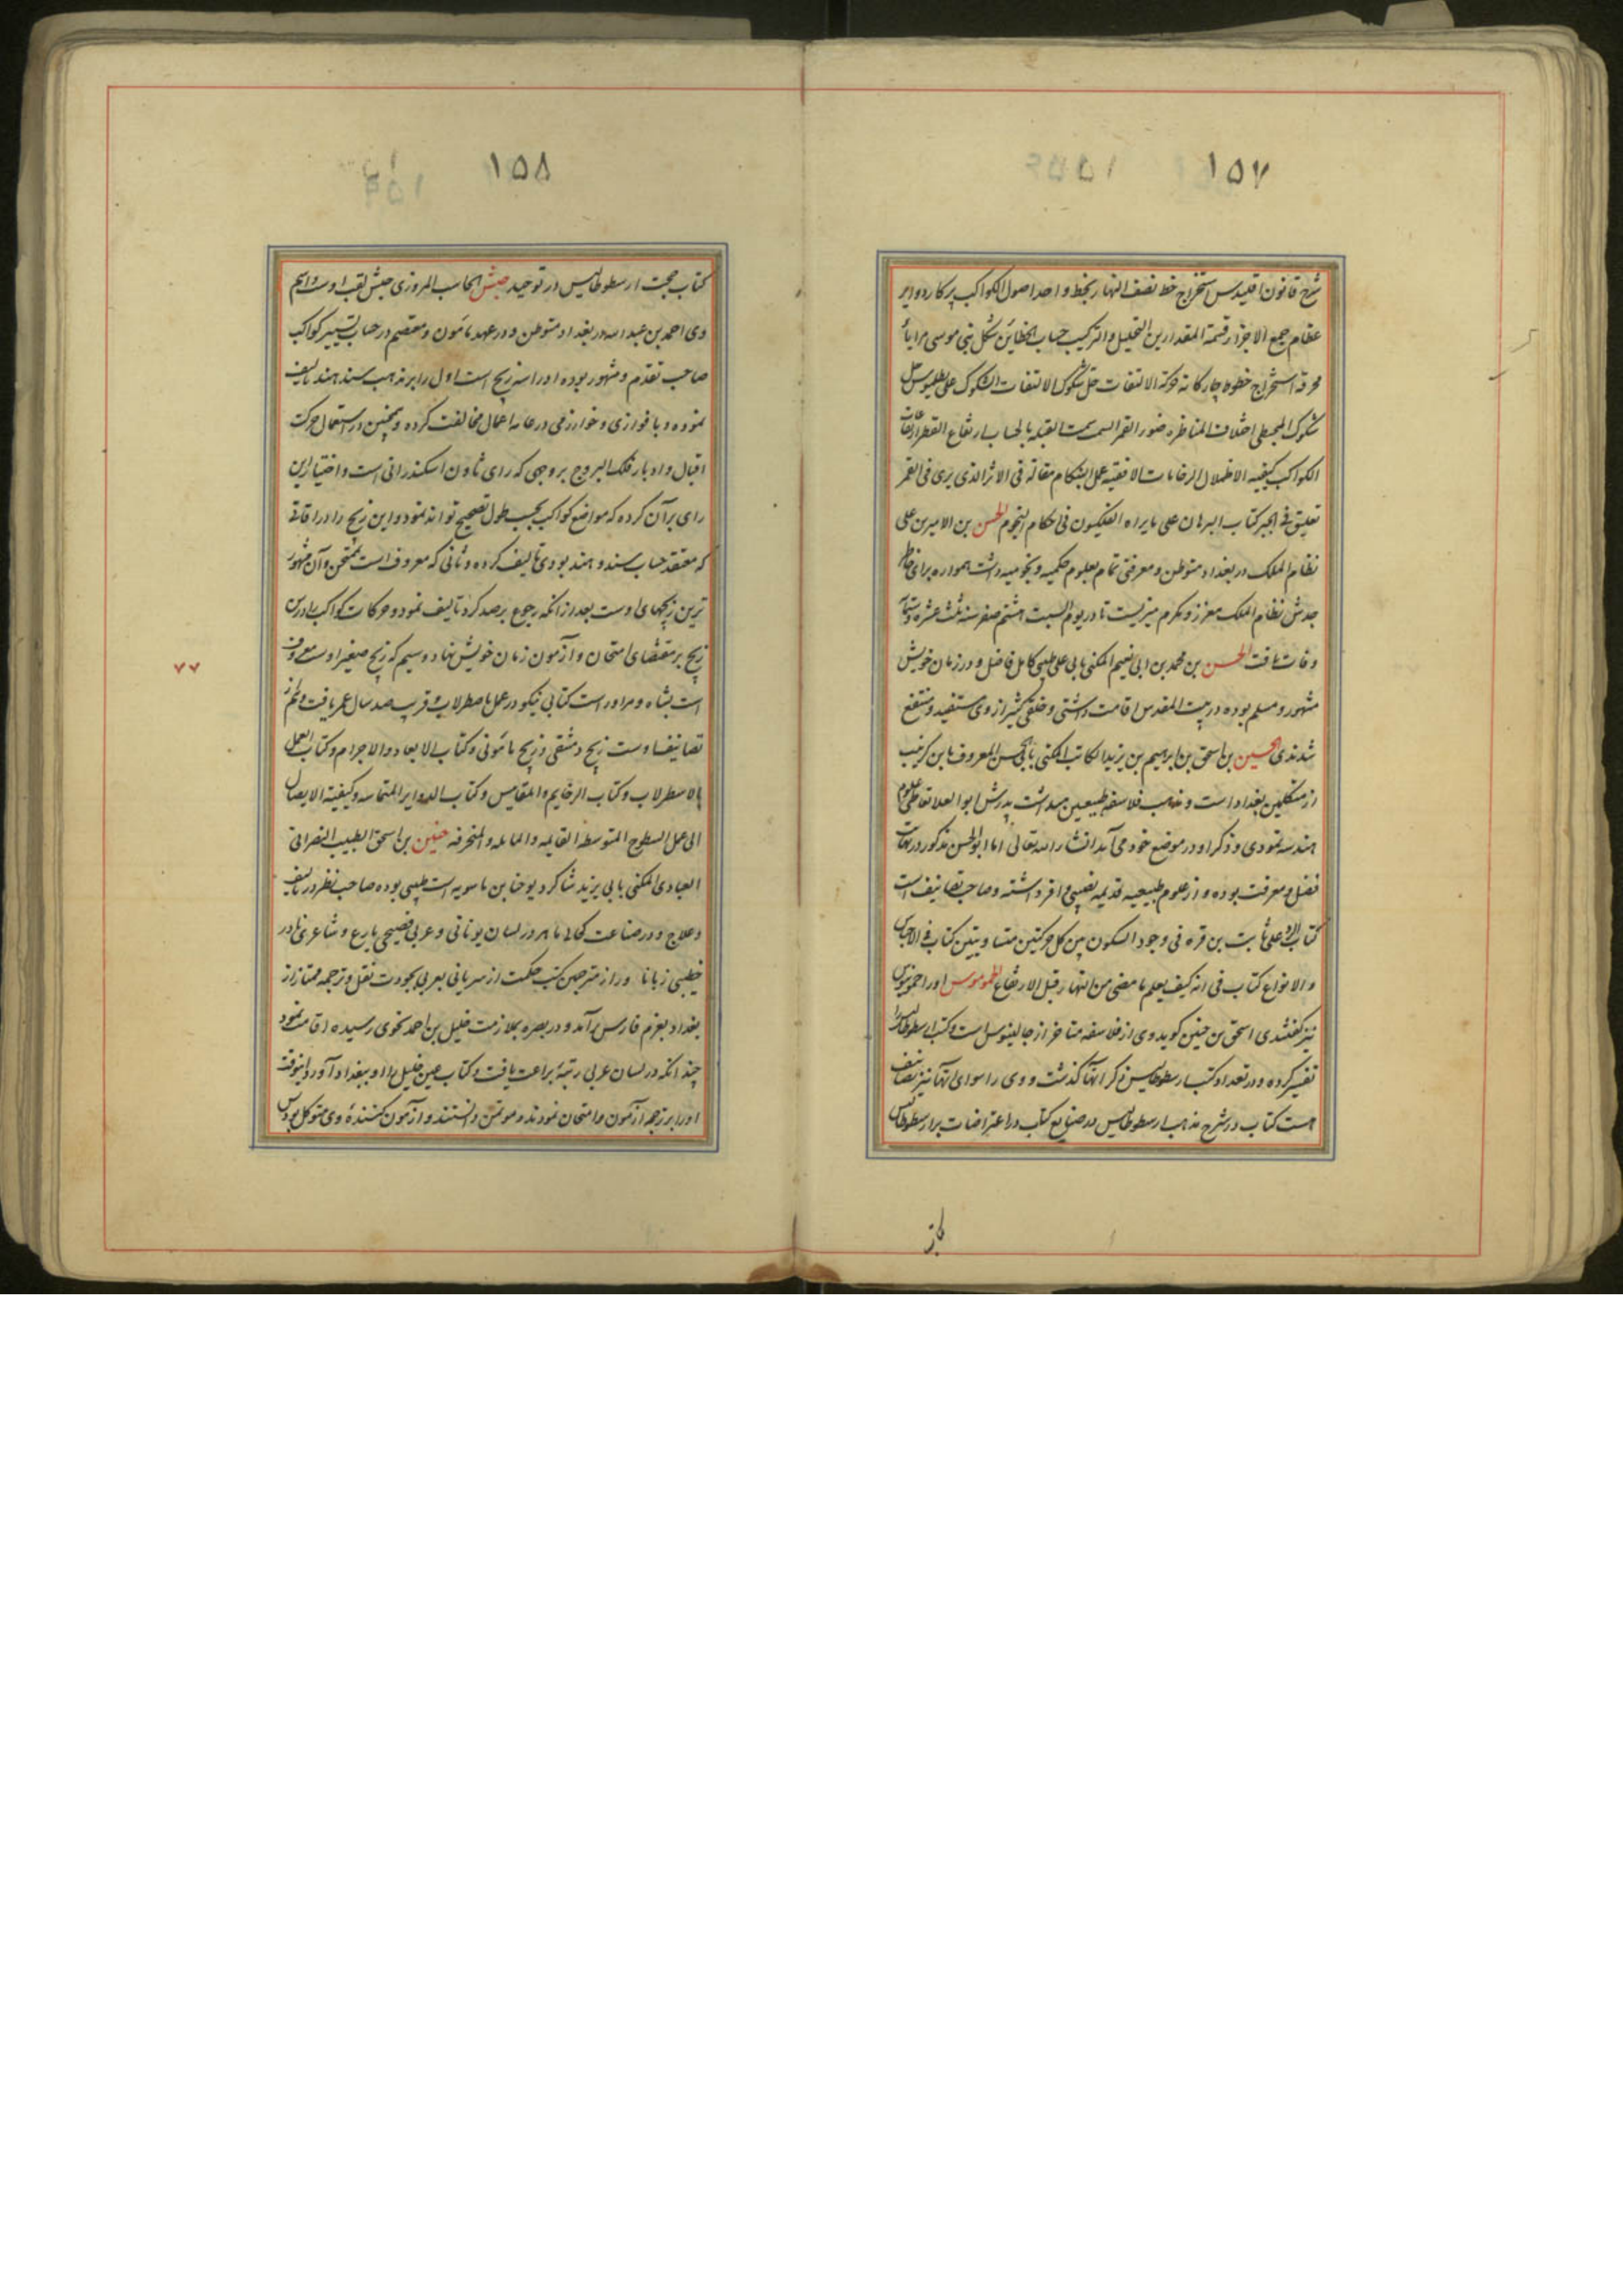 ١٥٧
شرح قانون اقلیدس استخراج خط نصف النهار بخط واحد اصول الکواکب پرکار دوایر
عظام جمع الاجزا قسمة المقدارین التحلیل والترکیب حساب الخطاین شکل بنی موسی مرایا
محرقه استخراج خطوط چارکانه حرکة الالتفات حل شکوک الالتفات الشکوک علی بطلمیوس حل
شکوک المجسطی اختلاف المناظر ضوء القمر السمت سمت القبله بالحساب ارتفاع القطر ارتفاعات
الکواکب کیفیه الاظلال الرخامات الافقیه عمل البنکام مقاله فی الاثر الذی یری فی القمر
تعلیق فی الجبر کتاب البرهان علی مایراه الفلکیون فی احکام النجوم الحسن بن الامیر بن علی
نظام الملک در بغداد متوطن و معرفتی تمام بعلوم حکمیه و نجومیه داشت همواره برای خاطر
جدش نظام الملک معزز و مکرم میزیست تا در یوم السبت هشتم صفر سنه ثلث عشره وستمآ
وفات یافت الحسن بن محمد بن ابی نعیم المکنی بابی علی طبیبی کامل فاضل و در زمان خویش
مشهور و مسلم بوده در بیت المقدس اقامت داشتی و خلقی کثیر از وی مستفید و منتفع
شدندی الحسین بن اسحق بن ابراهیم بن یزید الکاتب المکنی بابی الحسن المعروف بابن کرنیب
از متکلمین بغداد است و مذهب فلاسفه طبیعین میداشت پدرش ابو العلا تعاطی علوم
هندسه نمودی و ذکر او در موضع خود می آید انشاء الله تعالی اما ابو الحسن مذکور در نهایت
فضل و معرفت بوده و از علوم طبیعیه قدیمه نصیبی وافر داشته و صاحب تصانیف است
کتاب الرد علی ثابت بن قره فی وجود السکون بین کل حرکتین متساویتین کتاب فی الاجناس
والانواع کتاب فی انه کیف یعلم ما مضی من النهار قبل الارتفاع
نیز گفتندی اسحق بن حنین کوید وی از فلاسفه متاخر از جالینوس است و کتب ارسطوطالیس را
تفسیر کرده و در تعداد کتب ارسطوطالیس ذکر آنها گذشت و وی را سوای آنها نیز تصانیف
هست کتاب در شرح مذهب ارسطوطالیس در صنایع کتاب در اعتراضات بر ارسطوطالیس
کتاب
١٥٨
کتاب حجت ارسطوطالیس در توحید حبش الحاسب المروزی حبش لقب اوست و اسم
وی احمد بن عبد الله در بغداد متوطن و در عهد مامون و معتصم در حساب تسییر کواکب
صاحب تقدم و مشهور بوده او را سه زیج است اول را بر مذهب سند هند تالیف
نموده و با فزاری و خوارزمی در عامه اعمال مخالفت کرده و همچنین در استعمال حرکت
اقبال و ادبار فلک البروج بر وجهی که رای ثاون اسکندرانی است و اختیار این
رای بر آن کرده که مواضع کواکب بحسب طول تصحیح تواند نمود و این زیج را در اوقاتی
که معتقد حساب سند و هند بودی تالیف کرده و ثانی که معروف است بممتحن و آن مشهور
ترین زیجهای اوست بعد از انکه رجوع برصد کرد تالیف نمود و حرکات کواکب را در این
زیج بر مقتضای امتحان و آزمون زمان خویش نهاد و سیم که زیج صغیر اوست معروف
است بشاه و مر او راست کتابی نیکو در عمل باصطرلاب قریب صد سال عمر یافت و هم از
تصانیف اوست زیج دمشقی و زیج مامونی و کتاب الابعاد والاجرام و کتاب العمل
بالاسطرلاب و کتاب الرخایم والمقاییس و کتاب الدوایر المتماسه و کیفیة الایصال
الی عمل السطوح المتوسطه القایمه والمایله والمنحرفه حنین بن اسحق الطبیب النصرانی
العبادی المکنی بابی یزید شاکرد یوحنا بن ماسویه است طبیبی بوده صاحب نظر در تالیف
و علاج و در صناعت کحالی ماهر در لسان یونانی و عربی فصیحی بارع و شاعری نادر
خطیبی زبان اور از مترجمین کتب حکمت از سریانی بعربی بجودت نقل و ترجمه ممتاز از
بغداد بعزم فارس برآمد و در بصره بملازمت خلیل بن احمد نحوی رسیده اقامت نمود
چندانکه در لسان عربی رتبهٔ براعت یافت و کتاب عین خلیل را او ببغداد آورد
او را بر ترجمه آزمون و امتحان نمودند و موتمن دانستند و آزمون کنندهٔ وی متوکل بود پس
٧٧